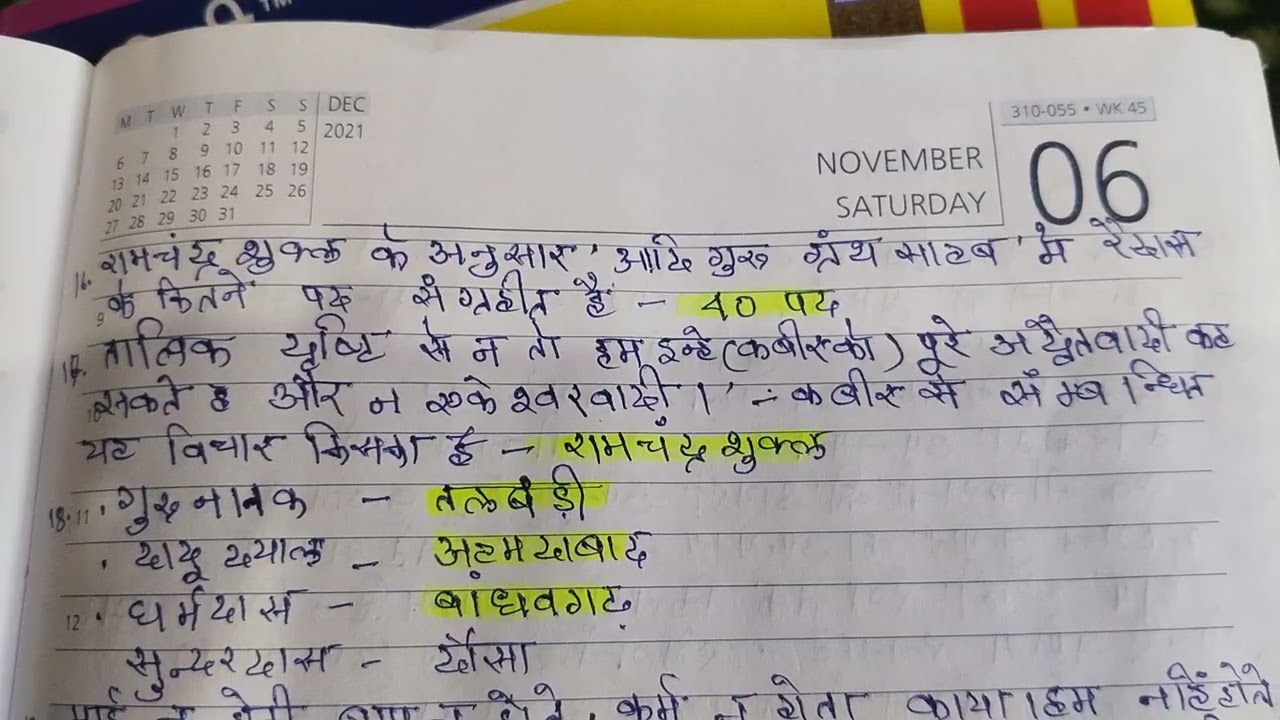 TM
M T W T F S S
1 2 3 4 5
6 7 8 9 10 11 12
13 14 15 16 17 18 19
20 21 22 23 24 25 26
27 28 29 30 31
DEC
2021
310-055 • WK 45
NOVEMBER
SATURDAY
06
16. रामचंद्र शुक्ल के अनुसार 'आदि गुरु ग्रंथ साहब' में रैदास
9 के कितने पद संग्रहीत हैं - 40 पद
17. तात्विक दृष्टि से न तो हम इन्हे (कबीर को) पूरे अद्वैतवादी कह
सकते है और न एकेश्वरवादी।' - कबीर से संम्बन्धित
यह विचार किसका है - रामचंद्र शुक्ल
18. 11 · गुरु नानक - तलबंड़ी
· दादू दयाल - अहमदाबाद
12 · धर्मदास - बांधवगढ़
सुन्दरदास - दौसा
कर्म न होता काया। हम नहिं होते